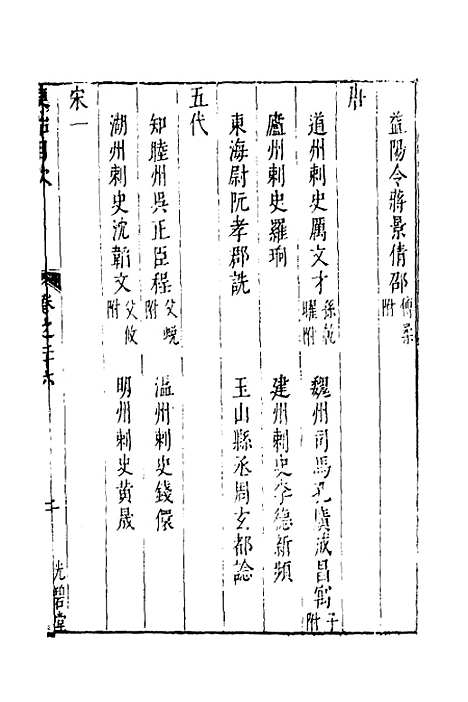 益陽令蔣景倩邵 傅柔附
唐
道州刺史厲文才 孫乾曜附
魏州司馬孔虞減昌寓 子附
廬州刺史羅珦
建州刺史李德新頻
東海尉阮孝郡詵
玉山縣丞周玄都諗
五代
知睦州吳正臣程 父蛻附
溫州刺史錢儇
湖州刺史沈韜文 父攸附
明州刺史黃晟
宋一
目次
卷之三六
二
光碧堂